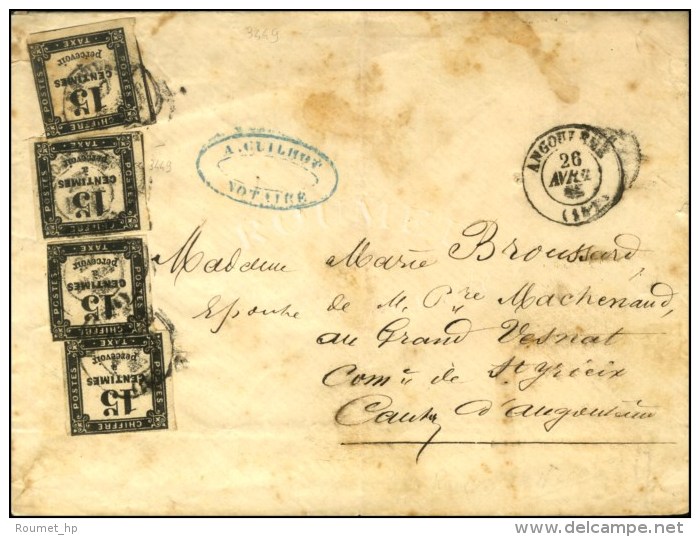 3449
POSTES
TAXE
à percevoir
15 CENTIMES
CHIFFRE
POSTES
3449
POSTES
TAXE
à percevoir
15 CENTIMES
CHIFFRE
POSTES
POSTES
TAXE
à percevoir
15 CENTIMES
CHIFFRE
POSTES
POSTES
TAXE
à percevoir
15 CENTIMES
CHIFFRE
POSTES
A. GUILHOT
NOTAIRE
26
AVRIL
ROUMET
Madame Marie Broussard,
Epouse de M. Pre Machenaud,
au Grand Vesnat
Comne de St Yrieix
Canton d'angoulême
Roumet_hp
delcampe.net